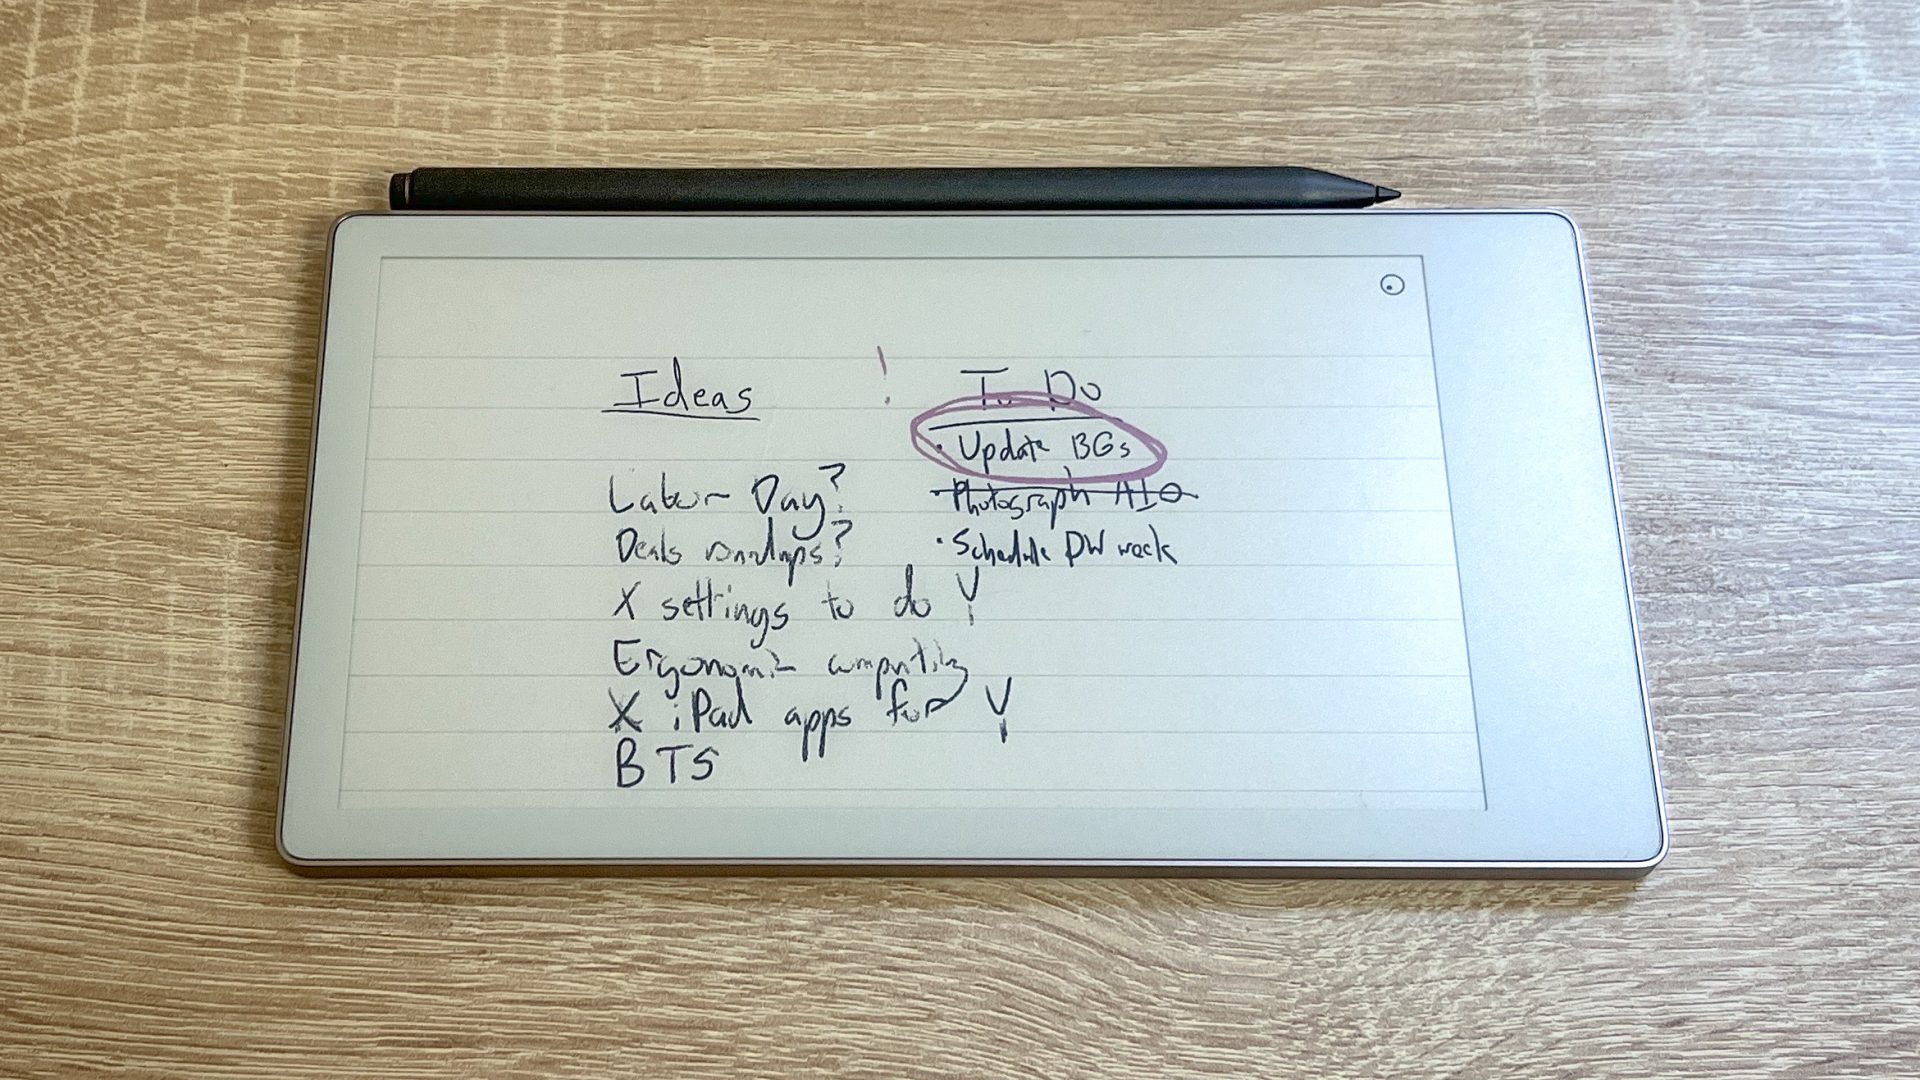 Ideas
Labor Day?
Deals roundups?
X settings to do Y
Ergonomic computing
X iPad apps for Y
BTS
! To Do
· Update BGs
· Photograph AIO
· Schedule PW week